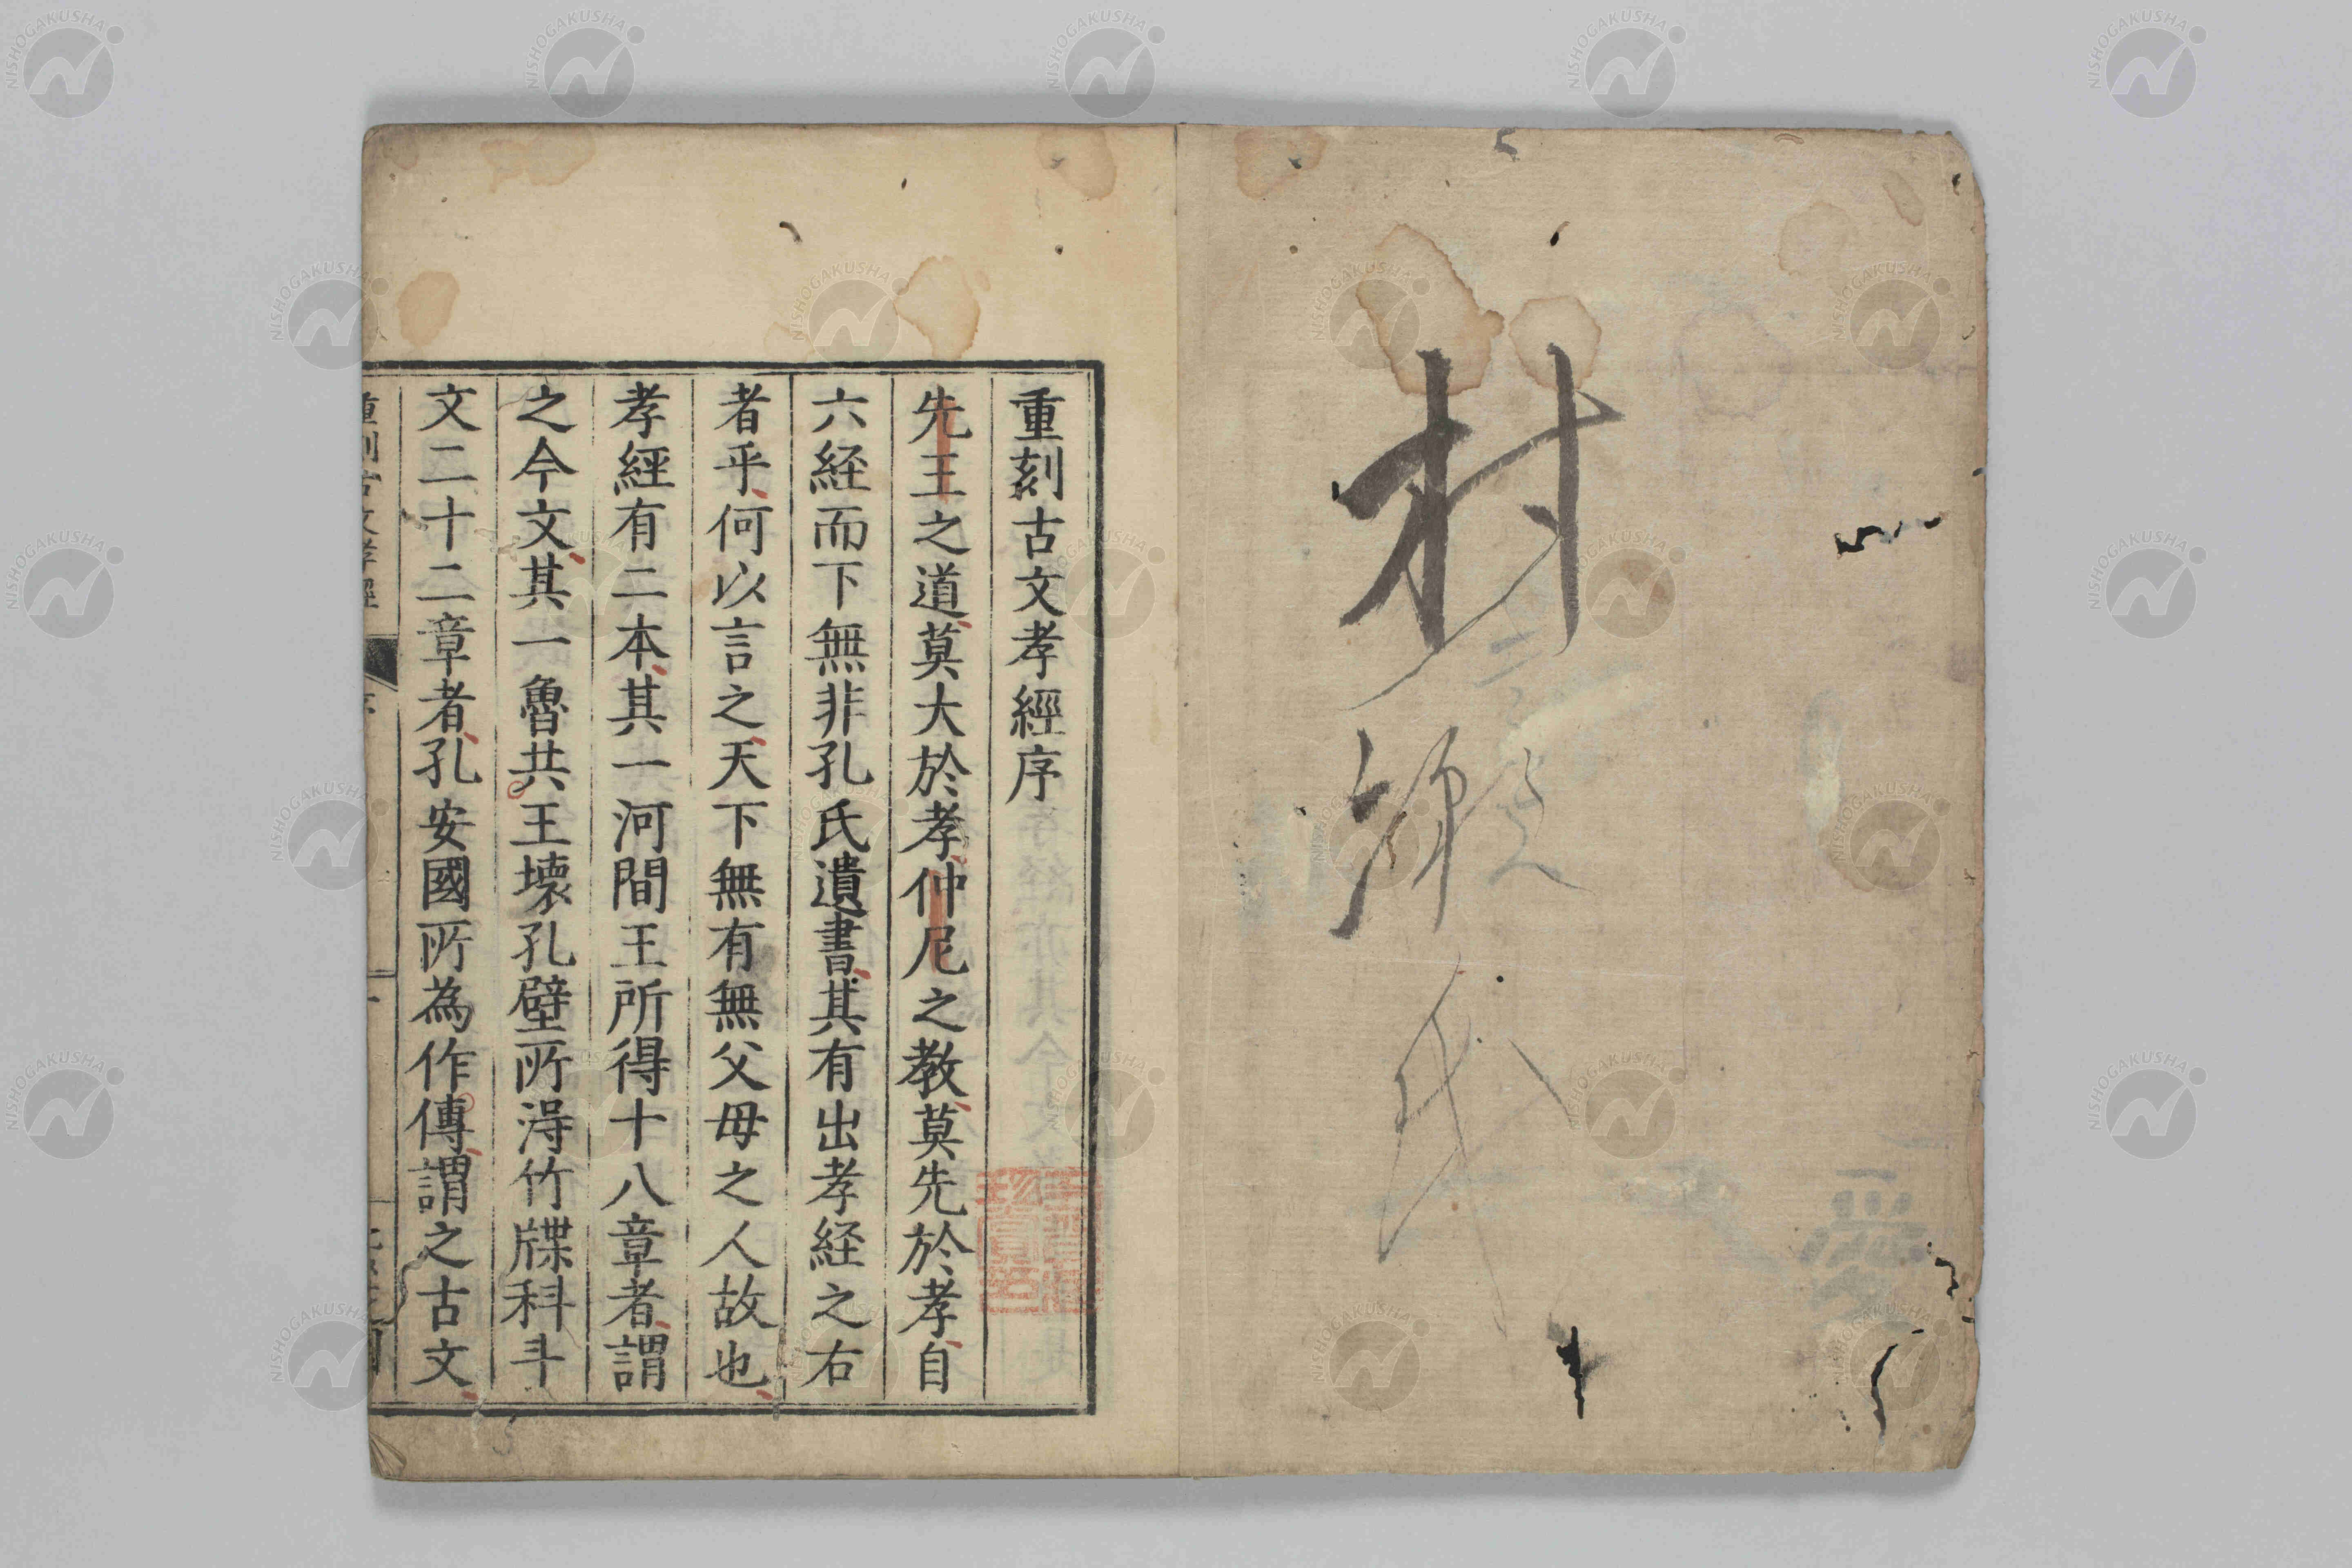 村瀬氏
重刻古文孝經序
先王之道莫大於孝仲尼之教莫先於孝自
六経而下無非孔氏遺書其有出孝経之右
者乎何以言之天下無有無父母之人故也
孝經有二本其一河間王所得十八章者謂
之今文其一魯共王壞孔壁所淂竹牒科斗
文二十二章者孔安國所為作傳謂之古文
重刻古文孝經
NISHOGAKUSHA